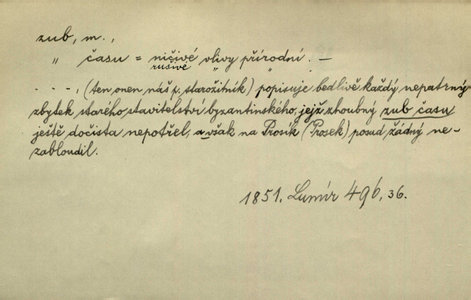 zub, m.,
" času = ničivé vlivy přírodní. —
rušivé " "
- - -, (ten onen náš p. starožitník) popisuje bedlivě každý nepatrný
zbytek starého stavitelství byzantinského, jejž zhoubný zub času
ještě dočista nepotřel, a však na Prosík (Prosek) posud žádný ne-
zabloudil.
1851. Lumír 496, 36.